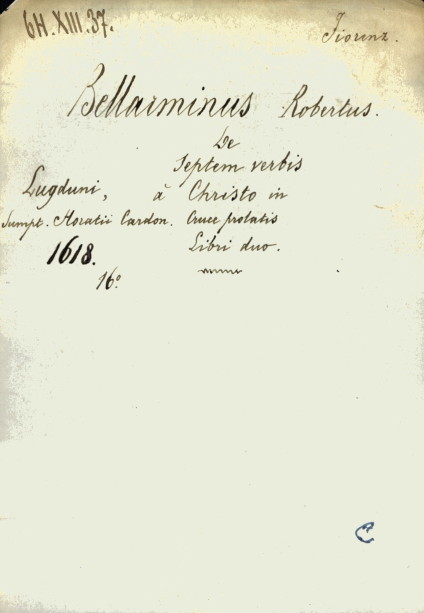 6H.XIII.37.
Fiorenz.
Bellarminus Robertus.
De
Septem verbis
à Christo in
Cruce prolatis
Libri duo.
Lugduni,
Sumpt. Horatii Cardon.
1618.
16°